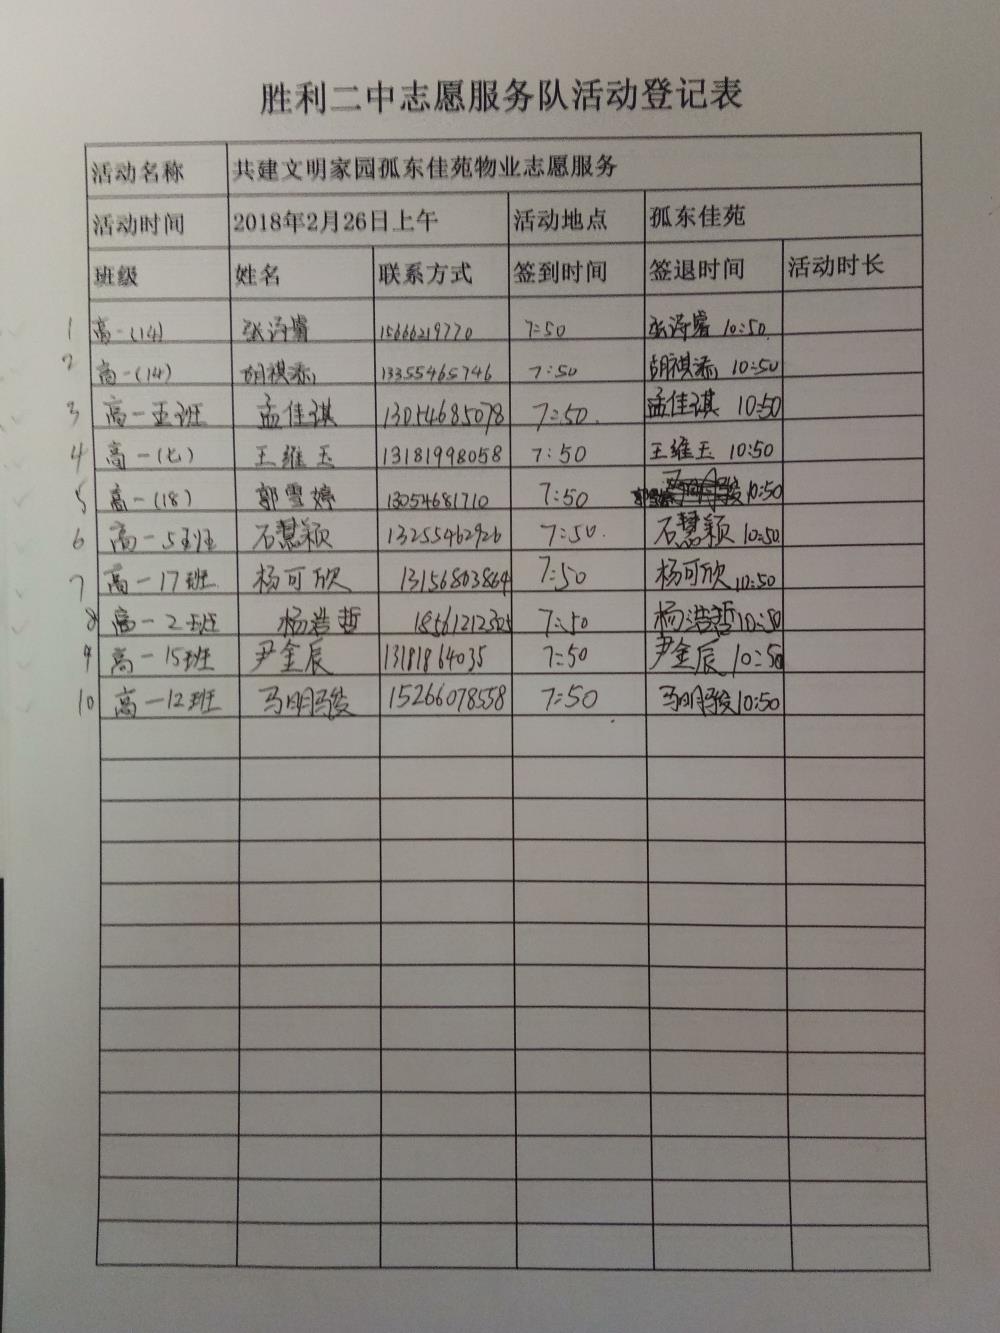 胜利二中志愿服务队活动登记表
活动名称 共建文明家园孤东佳苑物业志愿服务
活动时间 2018年2月26日上午 活动地点 孤东佳苑
班级 姓名 联系方式 签到时间 签退时间 活动时长
1 高一(14) 张诗睿 15666219770 7:50 张诗睿 10:50
2 高一(14) 胡祺添 13355465746 7:50 胡祺添 10:50
3 高一五班 孟佳琪 13054685078 7:50 孟佳琪 10:50
4 高一(七) 王维玉 13181998058 7:50 王维玉 10:50
5 高一(18) 郭雪婷 13054681710 7:50 郭雪婷 10:50
6 高一5班 石慧颖 13255462926 7:50 石慧颖 10:50
7 高一17班 杨可欣 13156803864 7:50 杨可欣 10:50
8 高一2班 杨浩哲 7:50 杨浩哲 10:50
9 高一15班 尹金辰 13181864035 7:50 尹金辰 10:50
10 高一12班 马明骏 15266078558 7:50 马明骏 10:50